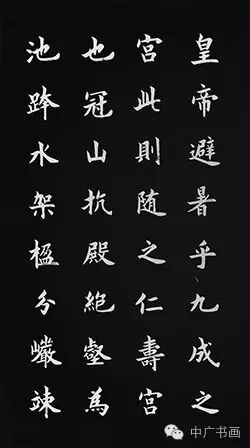 皇帝避暑乎九成之
宮此則随之仁壽宮
也冠山抗殿絕壑為
池跨水架楹分巖竦
中广书画